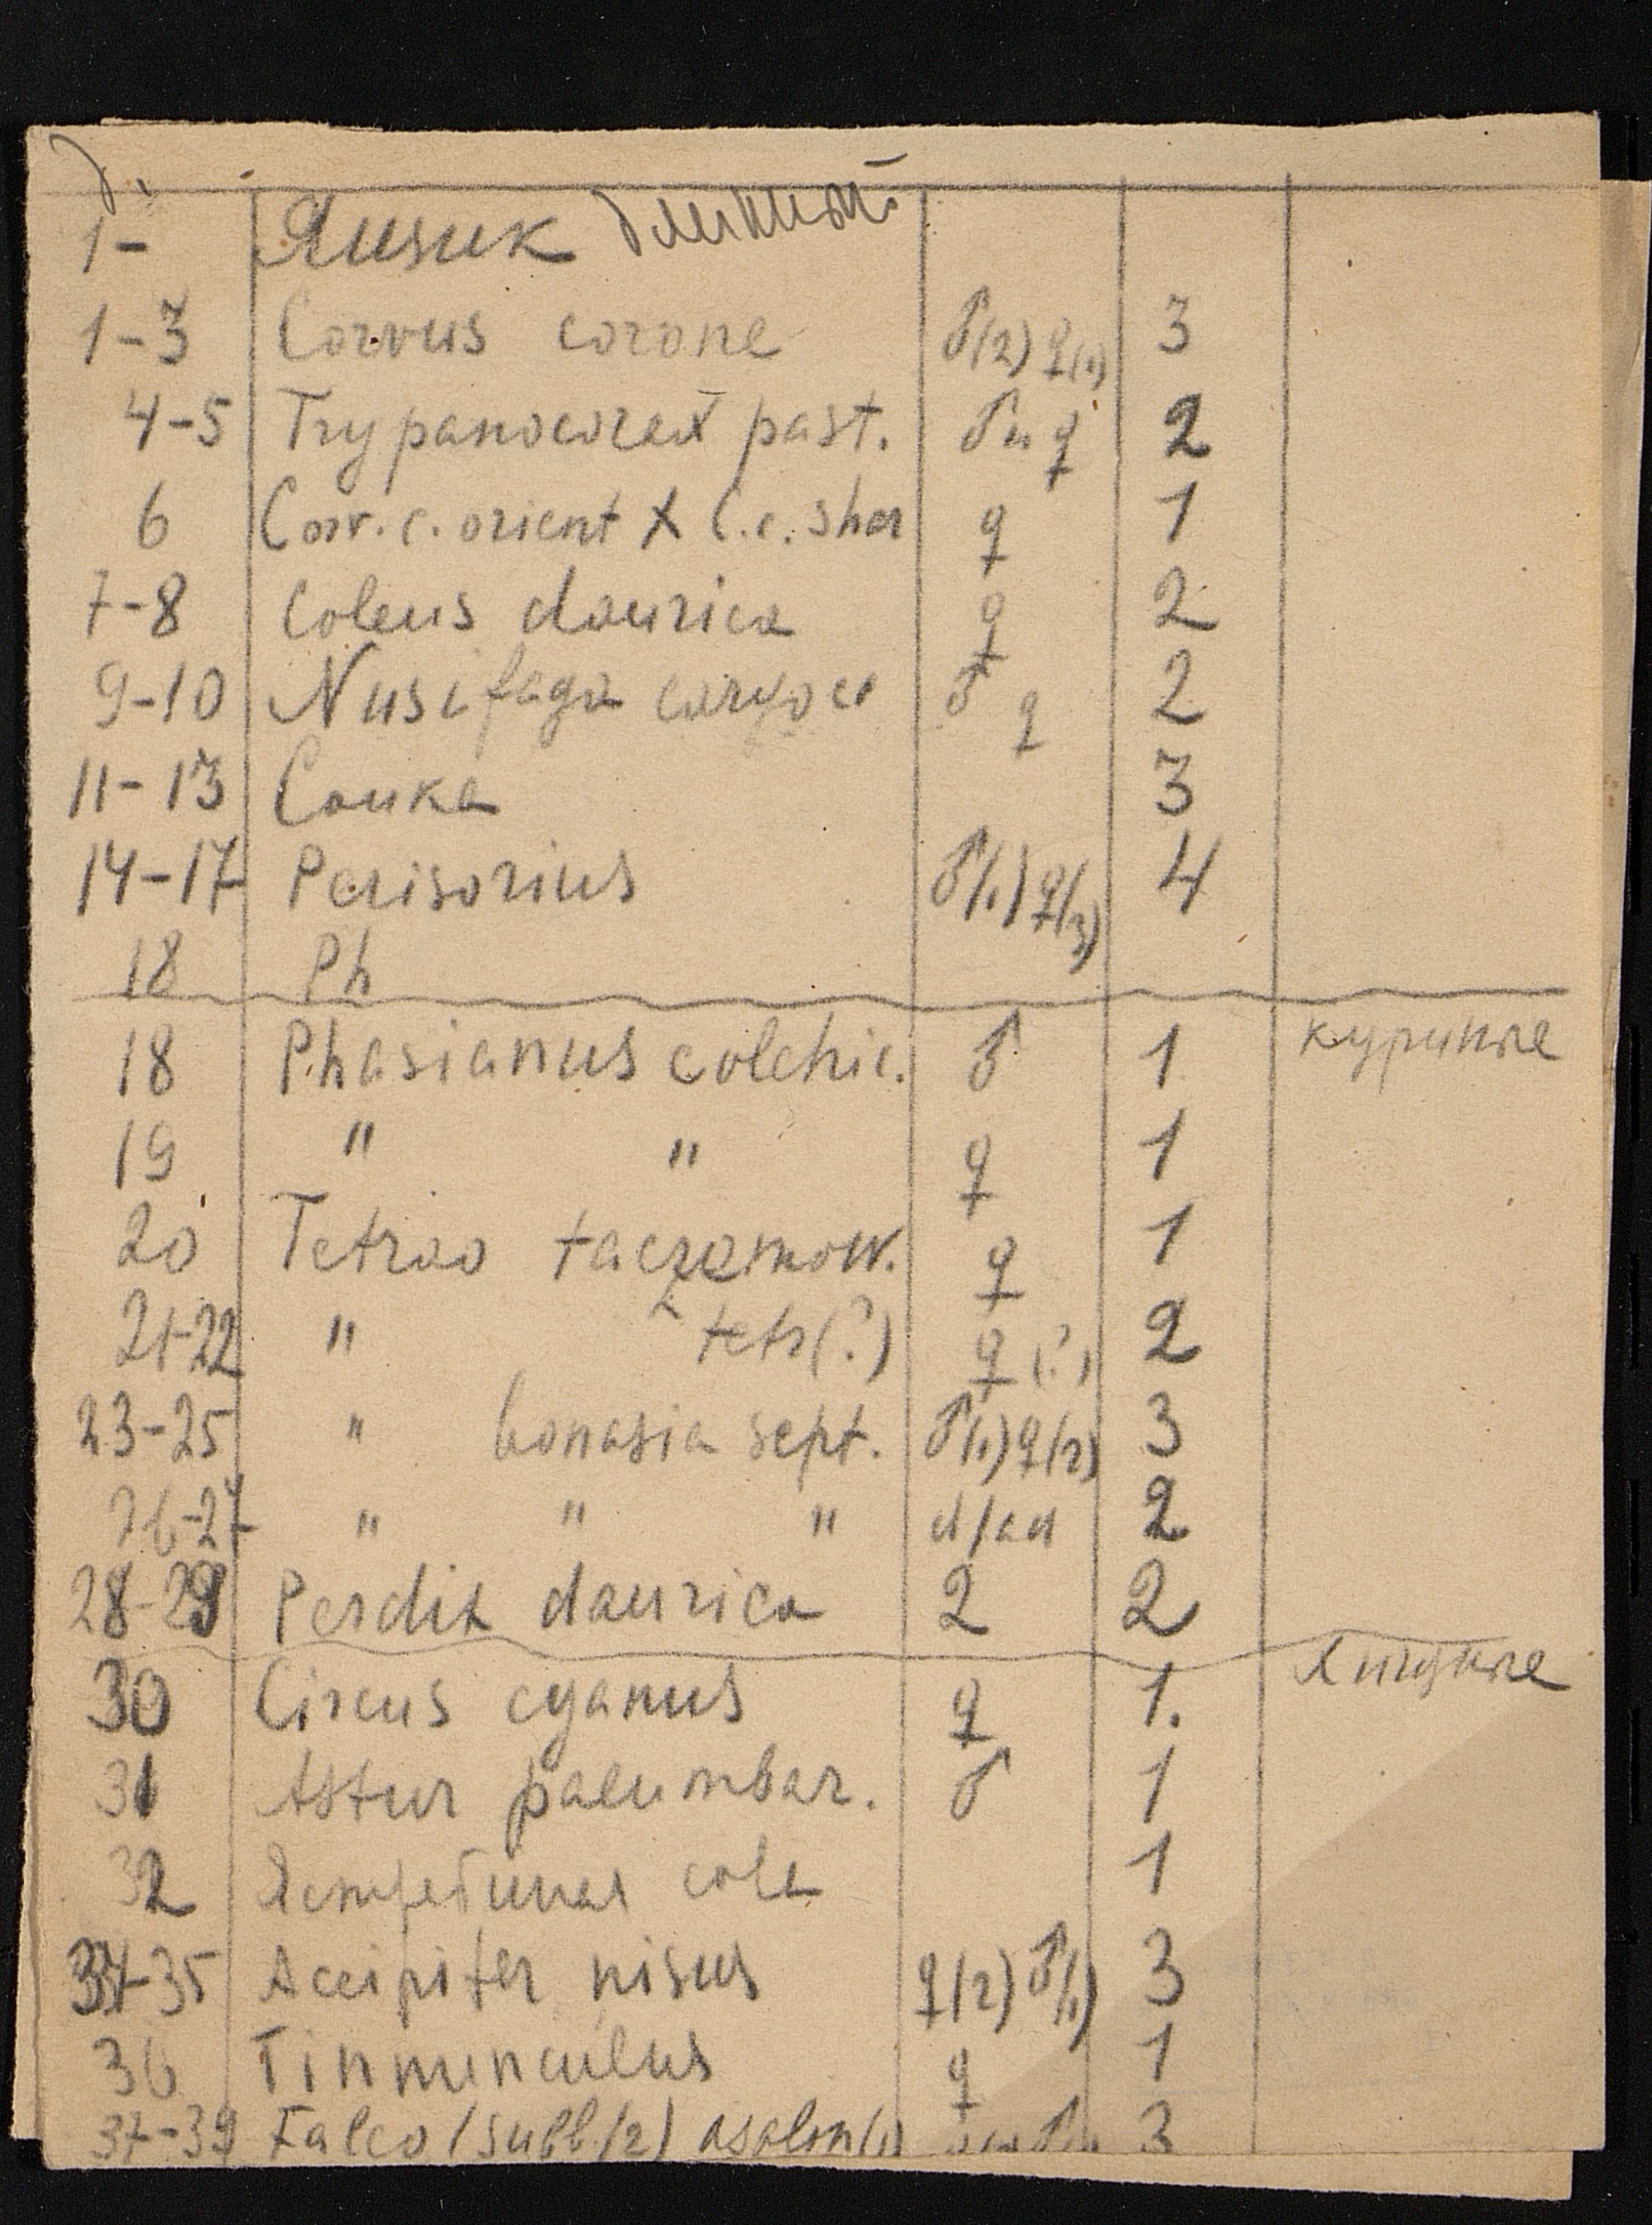 1- Ящик
1-3 Corvus corone ♂(2) ♀(1) 3
4-5 Trypanocorax past. ♂ и ♀ 2
6 Corv. c. orient X C.c. shar ♀ 1
7-8 Coleus daurica ♀ 2
9-10 Nusifaga caryoc ♂ ♀ 2
11-13 Сойка 3
14-17 Perisorius ♂(1) ♀(3) 4
18 Ph
18 Phasianus colchic. ♂ 1 куриные
19 " " ♀ 1
20 Tetrao taczanow. ♀ 1
21-22 " tetr(?) ♀(?) 2
23-25 " bonasia sept. ♂(1) ♀(2) 3
26-27 " " " 2
28-29 Perdix daurica 2 2
30 Circus cyanus ♀ 1. хищные
31 Astur palumbar. ♂ 1
32 Ястребиная сова 1
35 Accipiter nisus ♀(2) ♂(1) 3
36 Tinnunculus ♀ 1
37-39 Falco (subb.(2) asalon(1) 3